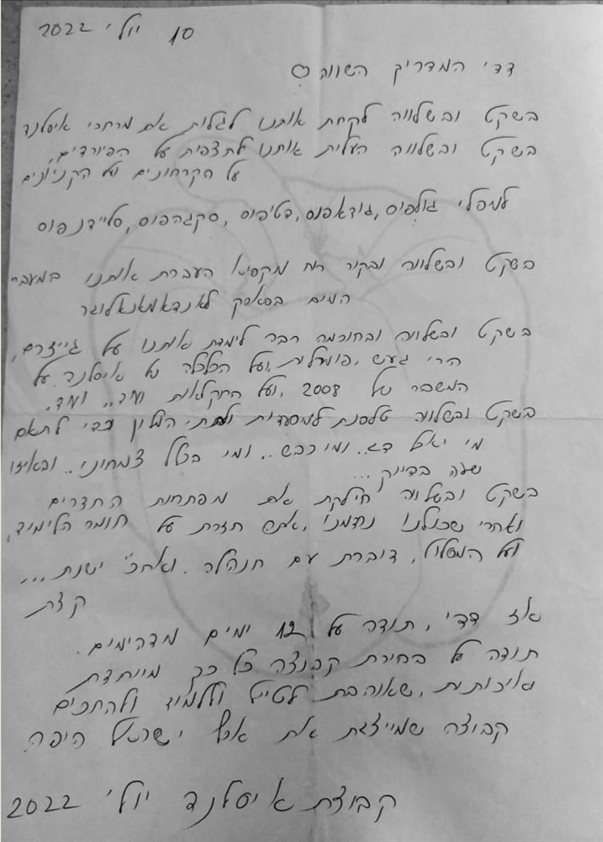 10 יולי 2022
דדי המדריך השווה
בשקט ובשלווה לקחת אותנו לגלות את מרחבי איסלנד
בשקט ובשלווה העלית אותנו לתצפית על הפיורדים,
על הקרחונים ועל הקניונים
למפלי גולפוס, גודאפוס, דטיפוס, סקגהפוס, סליידנפוס
בשקט ובשלווה ובקור רוח מקסים העברת אותנו במעבר
המים בפארק לאנדמאנאלוגר
בשקט ובשלווה ובחוכמה רבה לימדת אותנו על גייזרים,
הרי געש, פומרולות, ועל הכלכלה של איסלנד על
המשבר של 2008, ועל החקלאות ועוד.. ועוד.
בשקט ובשלווה טלפנת למסעדות ולבתי המלון כדי לתאם
מי יאכל דג.. ומי כבש.. ומי בכלל צמחוני.. ובאיזו
שעה בדיוק...
בשקט ובשלווה חילקת את מפתחות החדרים
ואחרי שכולנו נרדמנו, אתה חזרת על חומר הלימוד,
ועל המסלול, דיברת עם חנה'לה. ואח"כ ישנת...
קצת
אז דדי, תודה על 12 ימים מדהימים.
תודה על בחירת קבוצה כל כך מיוחדת
ואיכותית, שאוהבת לטייל וללמוד ולהחכים
קבוצה שמייצגת את ארץ ישראל היפה.
קבוצת איסלנד יולי 2022